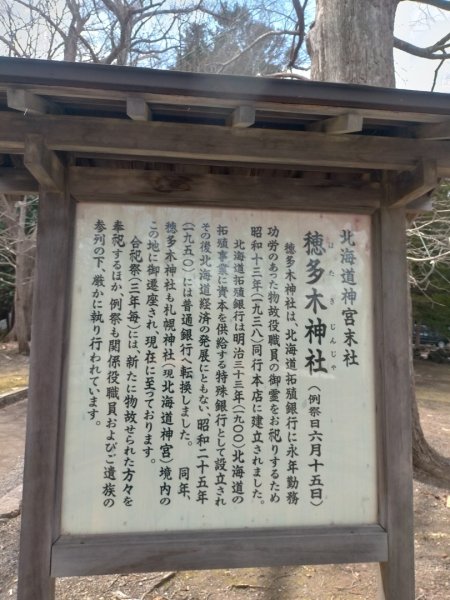 北海道神宮末社
穂多木神社（例祭日六月十五日）
ほたきじんじゃ
穂多木神社は、北海道拓殖銀行に永年勤務
功労のあった物故役職員の御霊をお祀りするため
昭和十三年（一九三八）同行本店に建立されました。
北海道拓殖銀行は明治三十三年（一九〇〇）北海道の
拓殖事業に資本を供給する特殊銀行として設立され
その後北海道経済の発展にともない、昭和二十五年
（一九五〇）には普通銀行へ転換しました。　同年、
穂多木神社も札幌神社（現北海道神宮）境内の
この地に御遷座され、現在に至っております。
合祀祭（三年毎）には新たに物故せられた方々を
奉祀するほか、例祭も関係役職員およびご遺族の
参列の下、厳かに執り行われています。